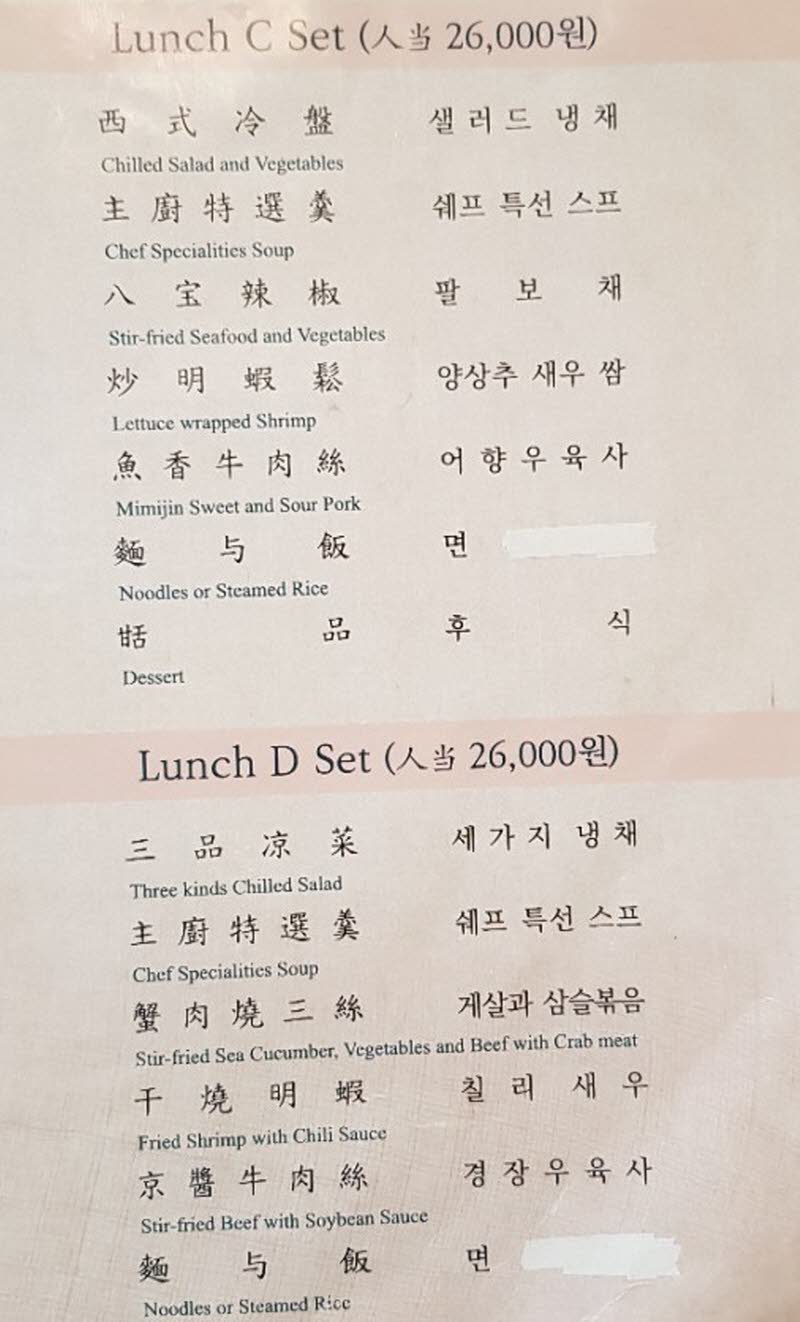 Lunch C Set (人当 26,000원)
西式冷盤 샐러드 냉채
Chilled Salad and Vegetables
主廚特選羹 쉐프 특선 스프
Chef Specialities Soup
八宝辣椒 팔보채
Stir-fried Seafood and Vegetables
炒明蝦鬆 양상추 새우 쌈
Lettuce wrapped Shrimp
魚香牛肉絲 어향우육사
Mimijin Sweet and Sour Pork
麵与飯 면
Noodles or Steamed Rice
甛品 후식
Dessert
Lunch D Set (人当 26,000원)
三品凉菜 세가지 냉채
Three kinds Chilled Salad
主廚特選羹 쉐프 특선 스프
Chef Specialities Soup
蟹肉燒三絲 게살과 삼슬볶음
Stir-fried Sea Cucumber, Vegetables and Beef with Crab meat
干燒明蝦 칠리 새우
Fried Shrimp with Chili Sauce
京醬牛肉絲 경장우육사
Stir-fried Beef with Soybean Sauce
麵与飯 면
Noodles or Steamed Rice